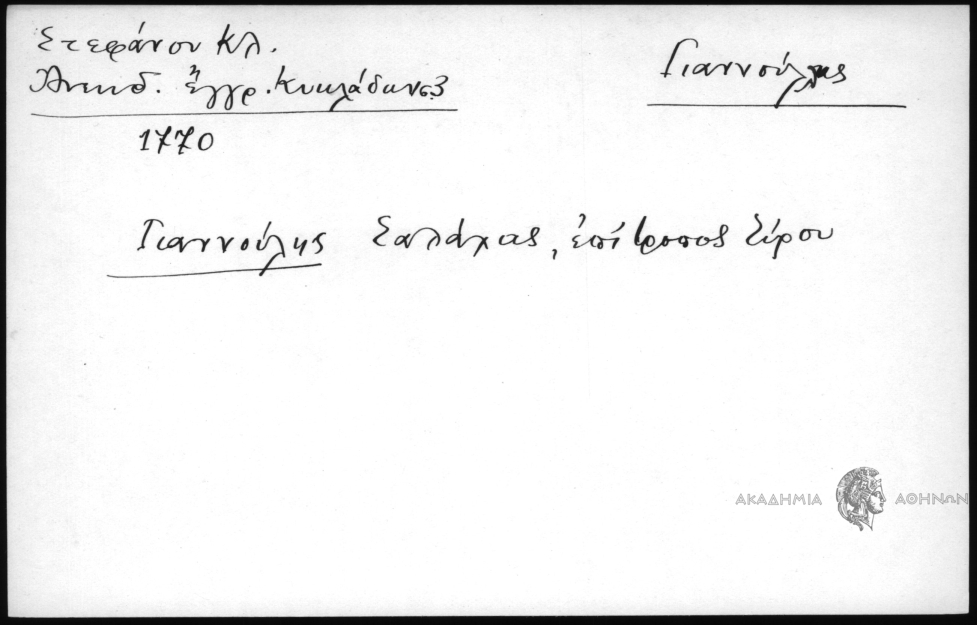 Στεφάνου Κλ.
Ἀνεκδ. ἔγγρ. Κυκλάδων σ. 3
Γιαννούλης
1770
Γιαννούλης Σαλάχας, ἐπίτροπος Σύρου
ΑΚΑΔΗΜΙΑ ΑΘΗΝΩΝ